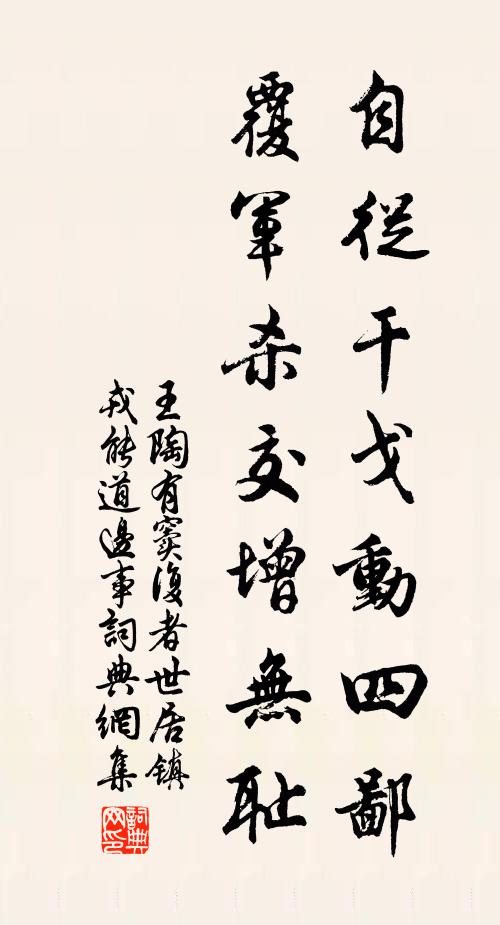 自從干戈動四鄙
覆軍杀交增無耻
王陶有寳復者世居鎮
戎能道邊事詞典網集
詞典
网印